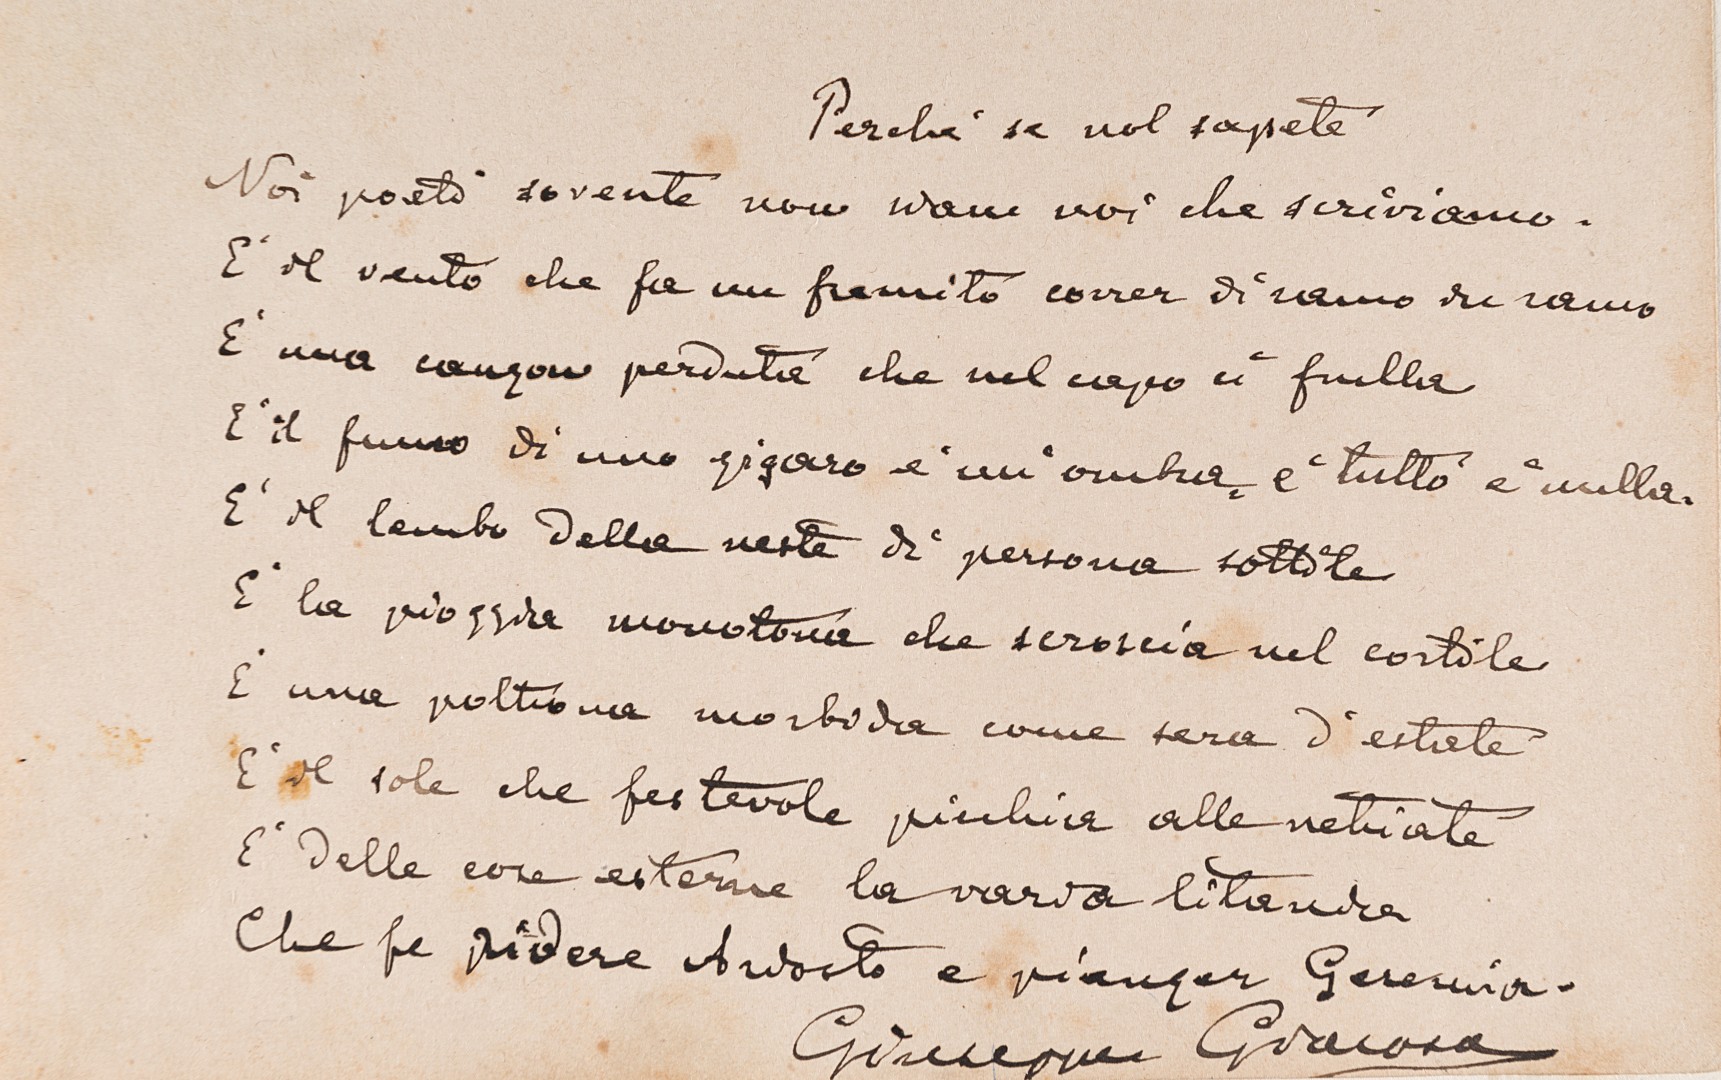 Perché se nol sapete
Noi poeti sovente non siam noi che scriviamo.
E' il vento che fa un fremito correr di ramo in ramo
E' una canzon perduta che nel capo ci frulla
E' il fumo di uno zigaro è un'ombra, è tutto è nulla.
E' il lembo della veste di persona sottile
E' la pioggia monotona che scroscia nel cortile
E' una poltrona morbida come sera d'estate
E' il sole che festevole picchia alle vetriate
E' delle cose esterne la varia litania
Che fe ridere Ariosto e pianger Geremia.
Giuseppe Giacosa